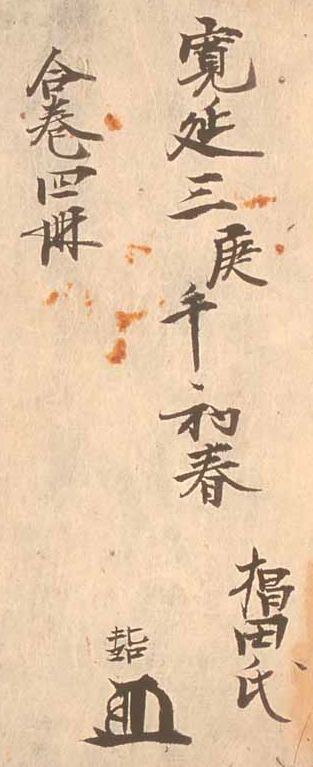 寛延三庚午初春
椙田氏
合巻四冊